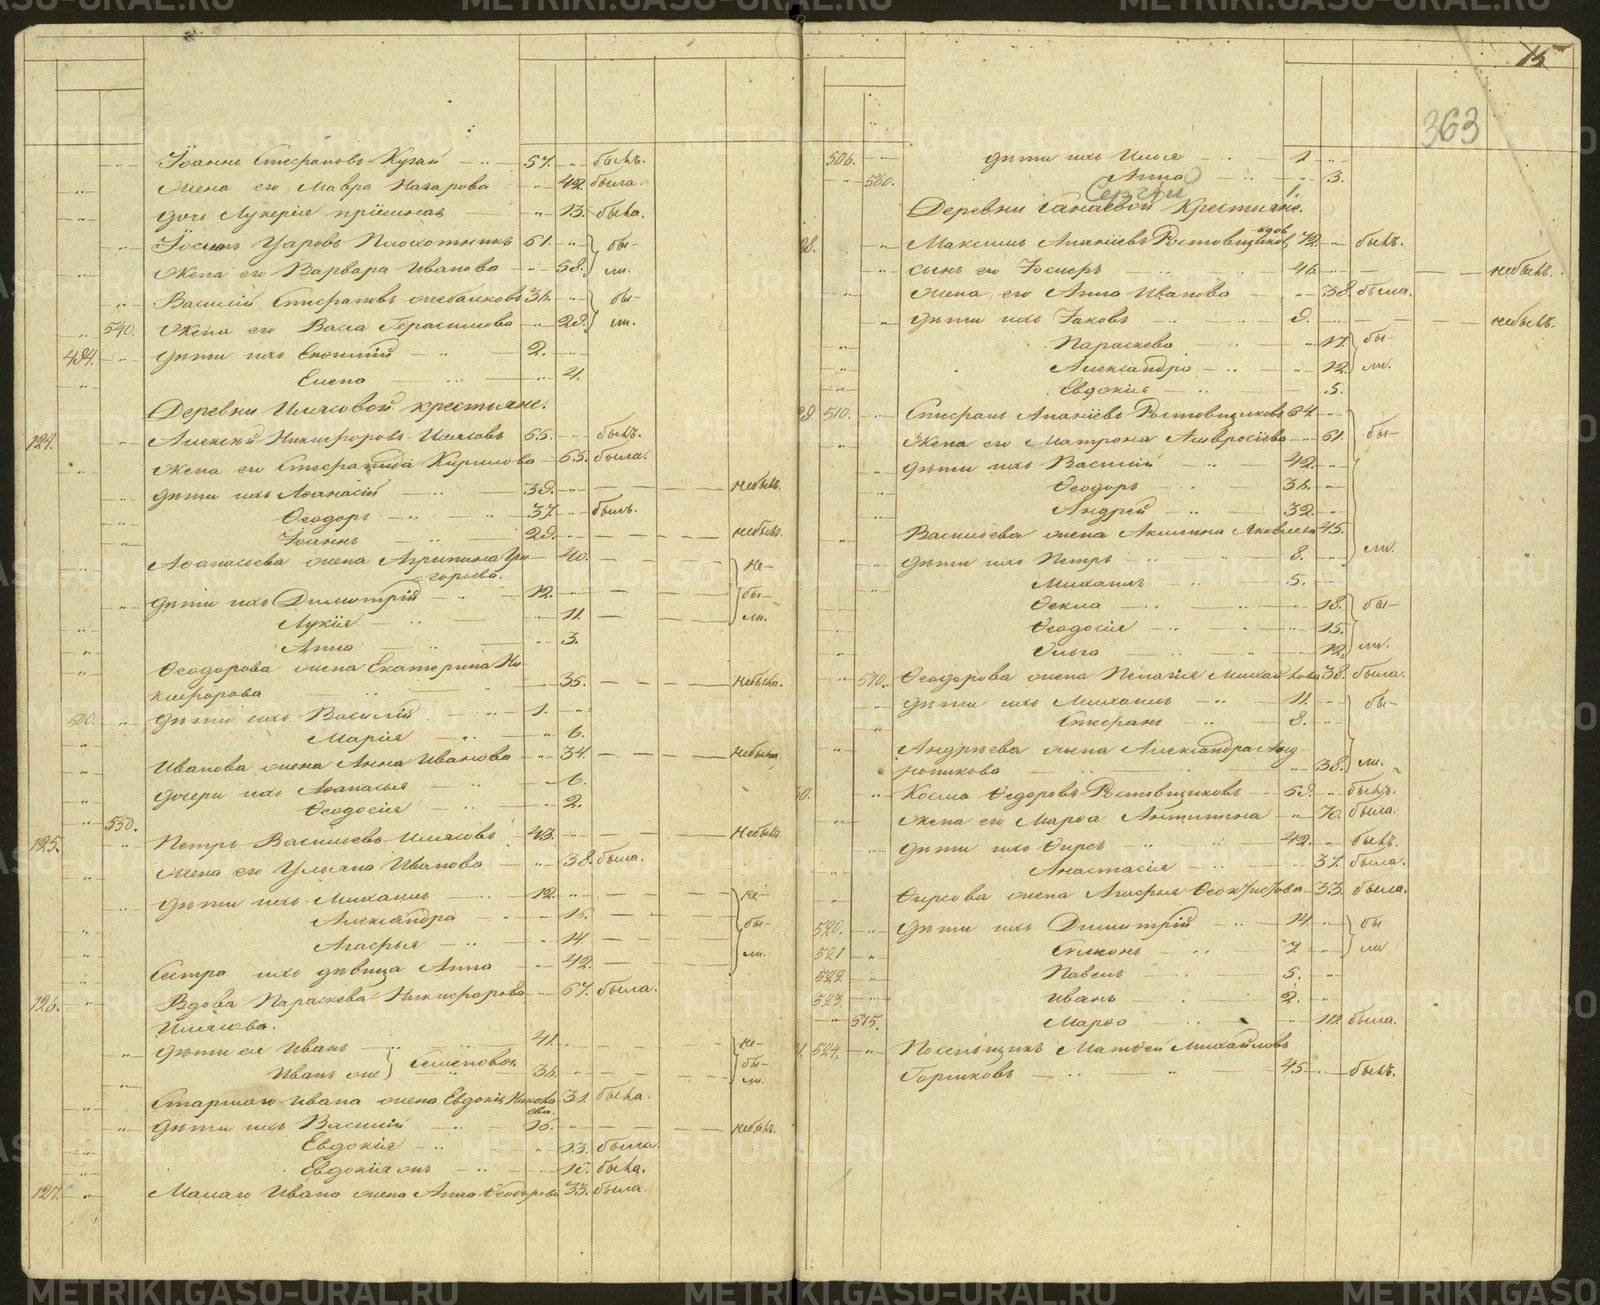 Іоаннъ Стефановъ Кугай — 57. — былъ.
Жена его Мавра Назарова — 42. была.
дочь Лукерія пріимная — 13. была.
Іосифъ Уаровъ Плохотникъ 61. — бы-
Жена его Варвара Иванова — 58. ли.
Василій Стефановъ 36. — бы-
540. Жена его Васса Герасимова — 29. ли.
494. дѣти ихъ Евоимій — 2.
Елена — 4.
Деревни Илясовой крестьяне.
124. Алексѣй Никифоровъ Илясовъ 65. — былъ.
Жена его Стефанида Кирилова — 65. была.
дѣти ихъ Аѳанасій — 39. — небылъ.
Ѳеодоръ — 37. — былъ.
Іоаннъ — 29. — небылъ.
Аѳанасьева жена Агрипина Гри- 40. — не-
горьева.
дѣти ихъ Димитрій — 12. — бы-
Лукія — 11. — ли.
Анна — 3.
Ѳеодорова жена Екатерина Ни-
кифорова — 35. — небыла.
500. дѣти ихъ Василій — 1.
Марія — 6.
Иванова жена Анна Иванова — 34. — небыла.
дочери ихъ Аѳанасья — 6.
550. Ѳеодосія — 2.
125. Петръ Васильевъ Илясовъ — 43. — Небылъ.
жена его Ульяна Иванова — 38. была.
дѣти ихъ Михаилъ — 12. — не-
Александра — 16. — бы-
Агафья — 14 — ли.
Сестра ихъ дѣвица Анна — 42.
126. Вдова Параскева Никифорова — 67. была.
Илясова.
дѣти ея Иванъ — 41. — не-
Иванъ же } Семеновы — 36. — бы-
ли.
Старшаго Ивана жена Евдокія Никола 31. была.
ева.
дѣти ихъ Василій — 16. — небылъ.
Евдокія — 13. была.
Евдокія жъ — 10. была.
127. Малаго Ивана жена Анна Ѳеодорова 33. была.
15
363
506. дѣти ихъ Илья — 1
560. Анна — 3.
Сергѣй 1.
Деревни Ганаевой Крестьяне.
28. Максимъ Ананіевъ Ростовщиковъ вдов 72. — былъ.
сынъ его Іосифъ — 46. — небылъ.
Жена его Анна Иванова — 38. была.
дѣти ихъ Іаковъ — 9. — небылъ.
Параскева — 17. бы-
Александра — 12. ли.
Евдокія — 5.
29. 510. Стефанъ Ананіевъ Ростовщиковъ 64.
Жена его Матрона Амвросіева — 61. бы-
дѣти ихъ Василій — 42.
Ѳеодоръ — 36.
Андрей — 32.
Васильева жена Акилина Яковлева 45.
дѣти ихъ Петръ — 8. — ли.
Михаилъ — 5.
Ѳекла — 18. бы-
Ѳеодосія — 15.
Ольга — 12. ли.
570. Ѳеодорова жена Пелагія Михайлова 38. была.
дѣти ихъ Михаилъ — 11. — бы-
Стефанъ — 8.
Андреева жена Александра Анд-
роникова — 38. ли.
30. Косма Ѳедоровъ Ростовщиковъ — 69. — былъ.
Жена его Марѳа Антипина — 70. была.
дѣти ихъ Ѳирсъ — 42. — былъ.
Анастасія — 37. была.
Ѳирсова жена Агафья Ѳеоктистова — 33. была.
520. дѣти ихъ Димитрій — 14. — бы
521 Симонъ — 7. — ли
522 Павелъ — 5.
523. Иванъ — 2.
575. Марѳа — 12 была.
31. 524. Поселыцикъ Матѳей Михайловъ
Горшковъ — 45. — былъ.
METRIKI.GASO-URAL.RU